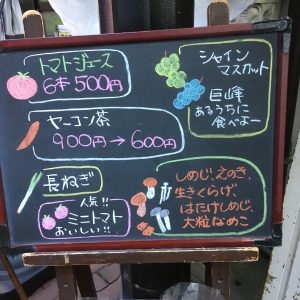 トマトジュース
6本 500円
シャイン
マスカット
巨峰
あるうちに
食べよー
ヤーコン茶
900円→600円
長ねぎ
人気!!
ミニトマト
おいしい!!
しめじ、えのき、
生きくらげ、
はたけしめじ、
大粒なめこ